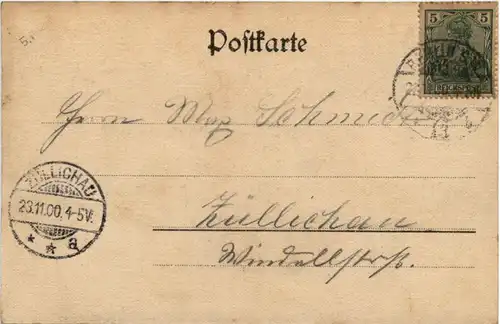 5
Postkarte
5
REICHSPOST
Herrn Max Schmidt
ZÜLLICHAU
23.11.00. 4-5V.
* * a
Züllichau